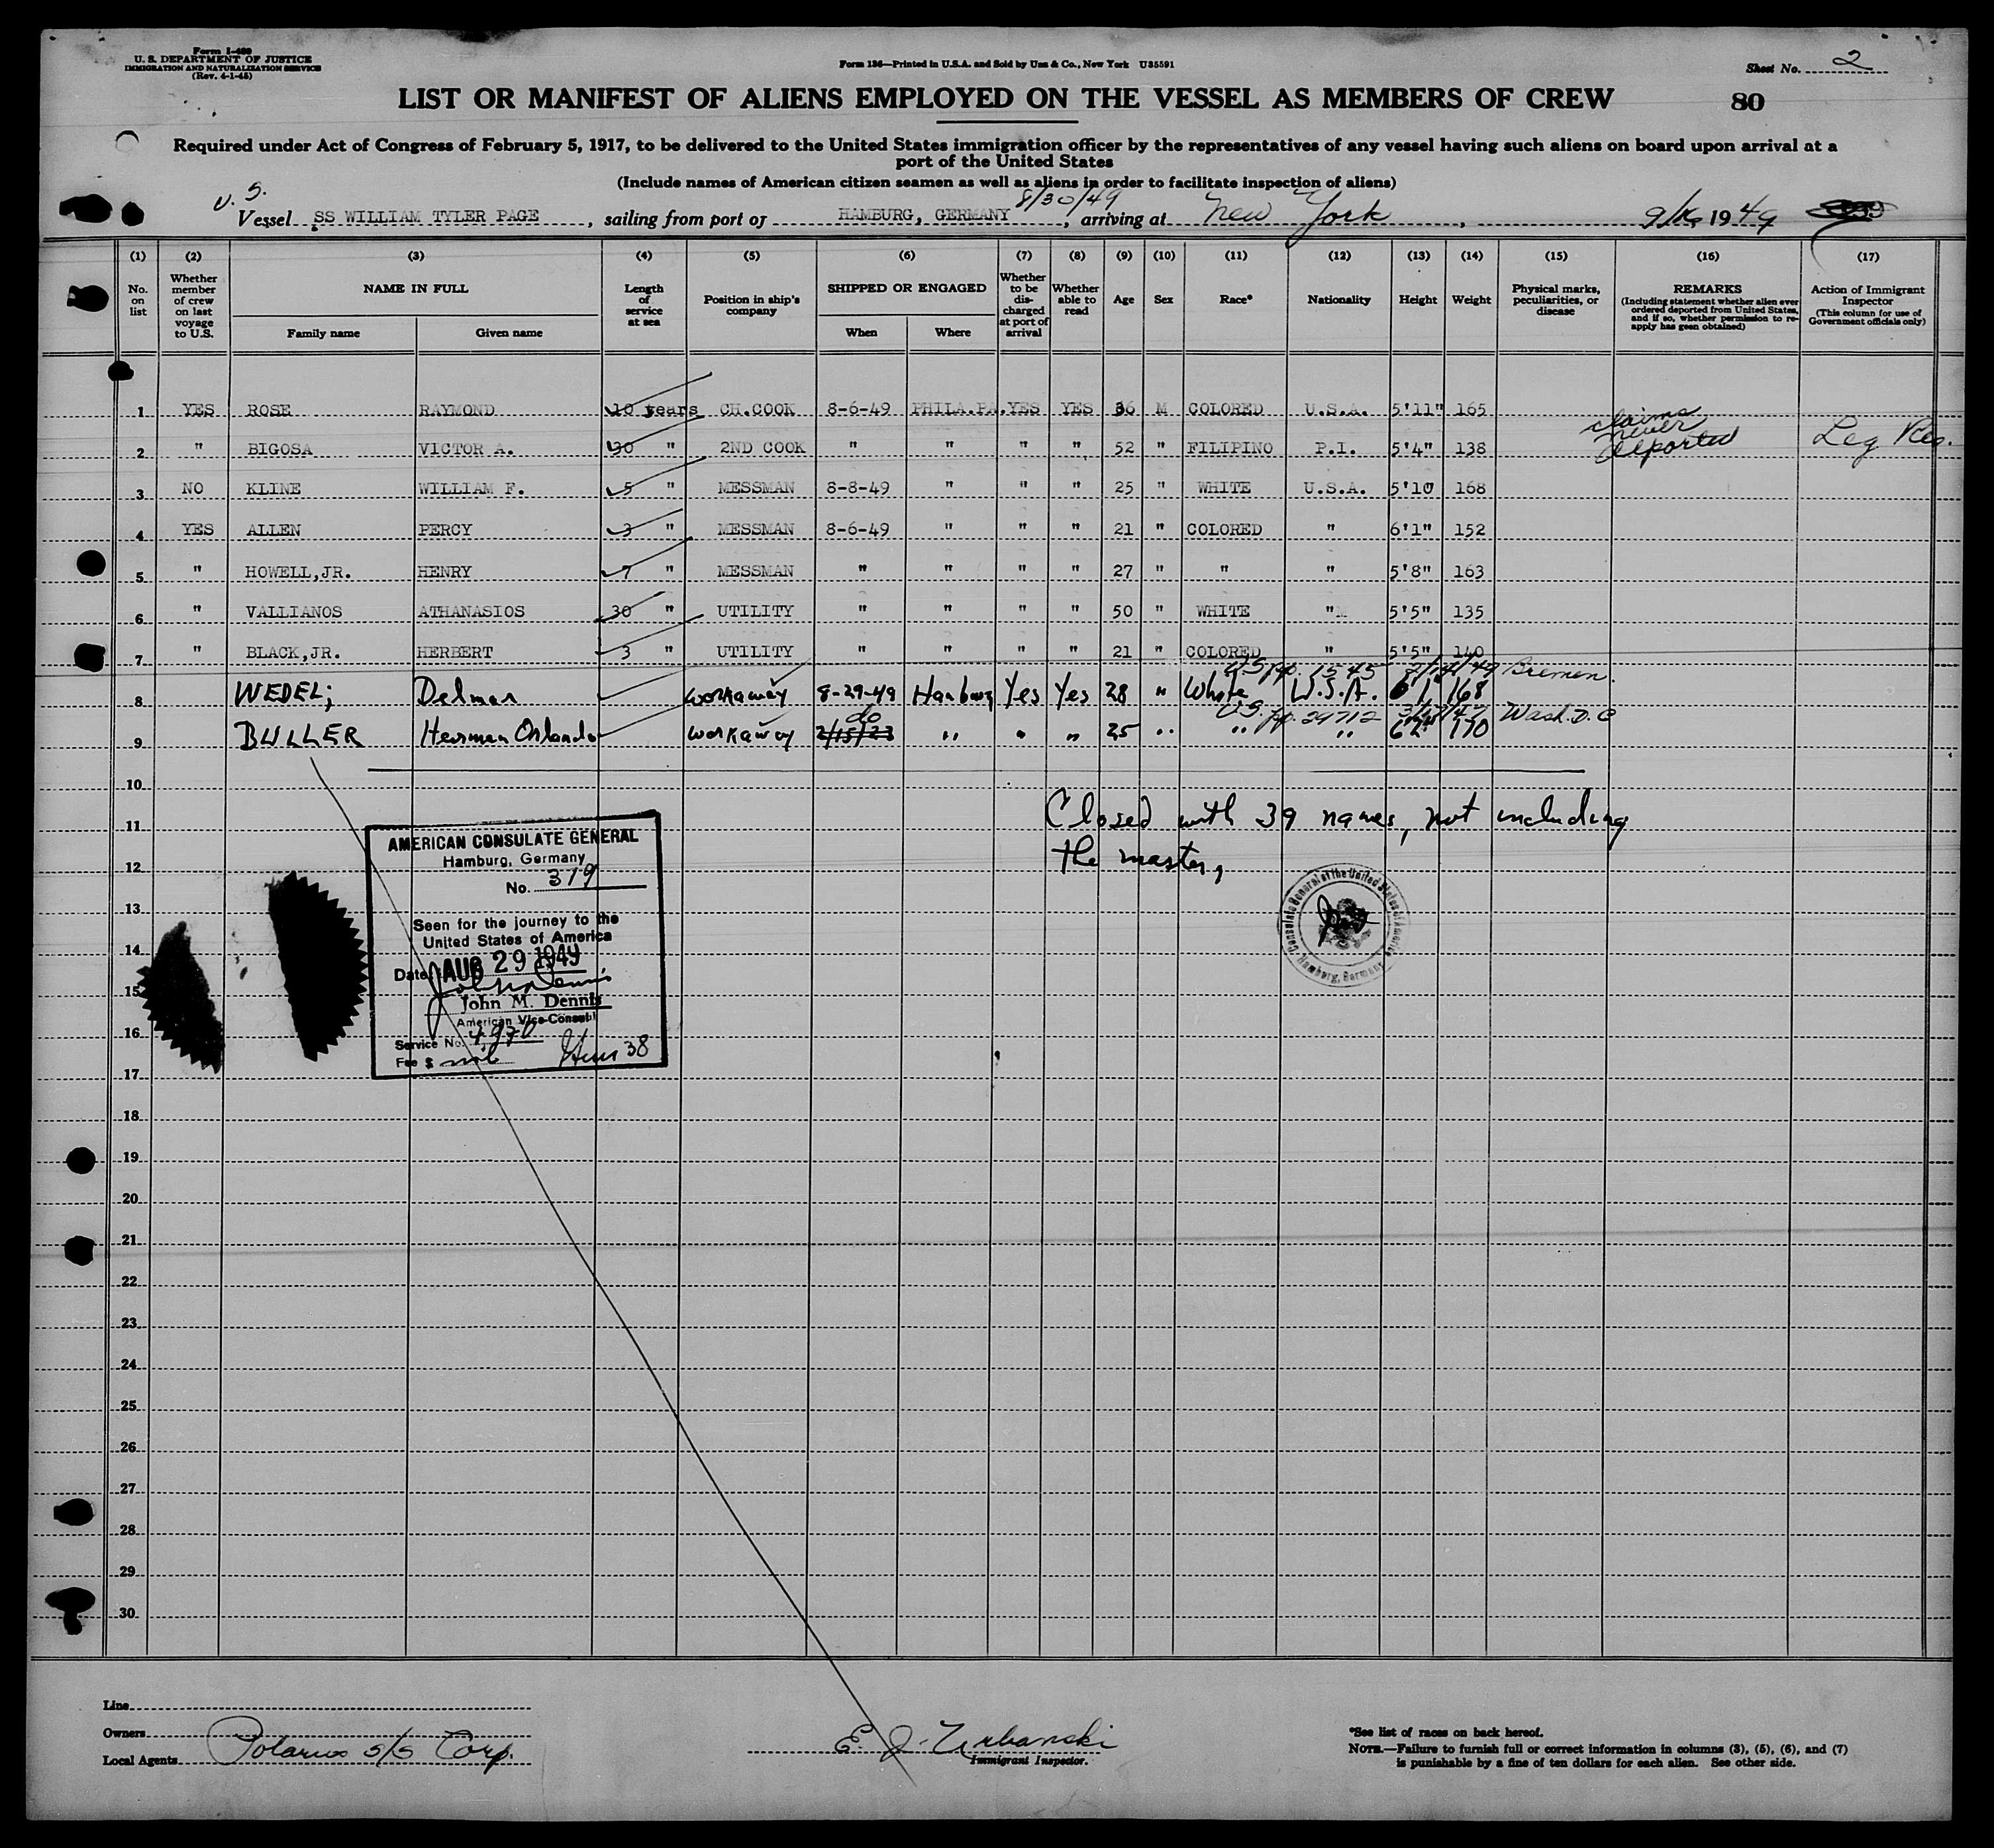 Form I-489
U. S. DEPARTMENT OF JUSTICE
IMMIGRATION AND NATURALIZATION SERVICE
(Rev. 4-1-45)
Form 136—Printed in U.S.A. and Sold by Unz & Co., New York U35591
Sheet No. 2
LIST OR MANIFEST OF ALIENS EMPLOYED ON THE VESSEL AS MEMBERS OF CREW
80
Required under Act of Congress of February 5, 1917, to be delivered to the United States immigration officer by the representatives of any vessel having such aliens on board upon arrival at a
port of the United States
(Include names of American citizen seamen as well as aliens in order to facilitate inspection of aliens)
U. S. 8/30/49
Vessel SS WILLIAM TYLER PAGE, sailing from port of HAMBURG, GERMANY, arriving at New York, 1949
(1) (2) (3) (4) (5) (6) (7) (8) (9) (10) (11) (12) (13) (14) (15) (16) (17)
No. on list
Whether member of crew on last voyage to U.S.
NAME IN FULL
Family name
Given name
Length of service at sea
Position in ship's company
SHIPPED OR ENGAGED
When
Where
Whether to be discharged at port of arrival
Whether able to read
Age
Sex
Race*
Nationality
Height
Weight
Physical marks, peculiarities, or disease
REMARKS
(Including statement whether alien ever ordered deported from United States, and if so, whether permission to re-apply has geen obtained)
Action of Immigrant Inspector
(This column for use of Government officials only)
1 YES ROSE RAYMOND 10 years CH.COOK 8-6-49 PHILA.PA. YES YES 36 M COLORED U.S.A. 5'11" 165
2 " BIGOSA VICTOR A. 30 " 2ND COOK " " " " 52 " FILIPINO P.I. 5'4" 138 claims never deported Leg Res.
3 NO KLINE WILLIAM F. 5 " MESSMAN 8-8-49 " " " 25 " WHITE U.S.A. 5'10 168
4 YES ALLEN PERCY 3 " MESSMAN 8-6-49 " " " 21 " COLORED " 6'1" 152
5 " HOWELL,JR. HENRY 7 " MESSMAN " " " " 27 " " " 5'8" 163
6 " VALLIANOS ATHANASIOS 30 " UTILITY " " " " 50 " WHITE " 5'5" 135
7 " BLACK,JR. HERBERT 3 " UTILITY " " " " 21 " COLORED " 5'5" 140
U.S. pp. 1545 Bremen.
8 WEDEL; Delmar workaway 8-29-49 Hamburg Yes Yes 28 " White U.S.A. 6'1" 168
do U.S. pp. 29712 Wash. D.C
9 BULLER Herman Orlando workaway 2/15/23 " " " 25 " " " 6'2" 170
10
Closed with 39 names, not including
11
the master,
12
13
14
15
16
17
AMERICAN CONSULATE GENERAL
Hamburg, Germany
No. 319
Seen for the journey to the
United States of America
Date: AUG 29 1949
John M. Dennis
John M. Dennis
American Vice-Consul
Service No. 4970
Fee $ nil Item 38
Consulate General of the United States of America
Hamburg, Germany
18
19
20
21
22
23
24
25
26
27
28
29
30
Line
Owners
Local Agents Polarus S/S Corp.
E. J. Urbanski
Immigrant Inspector.
*See list of races on back hereof.
NOTE.—Failure to furnish full or correct information in columns (3), (5), (6), and (7)
is punishable by a fine of ten dollars for each alien. See other side.